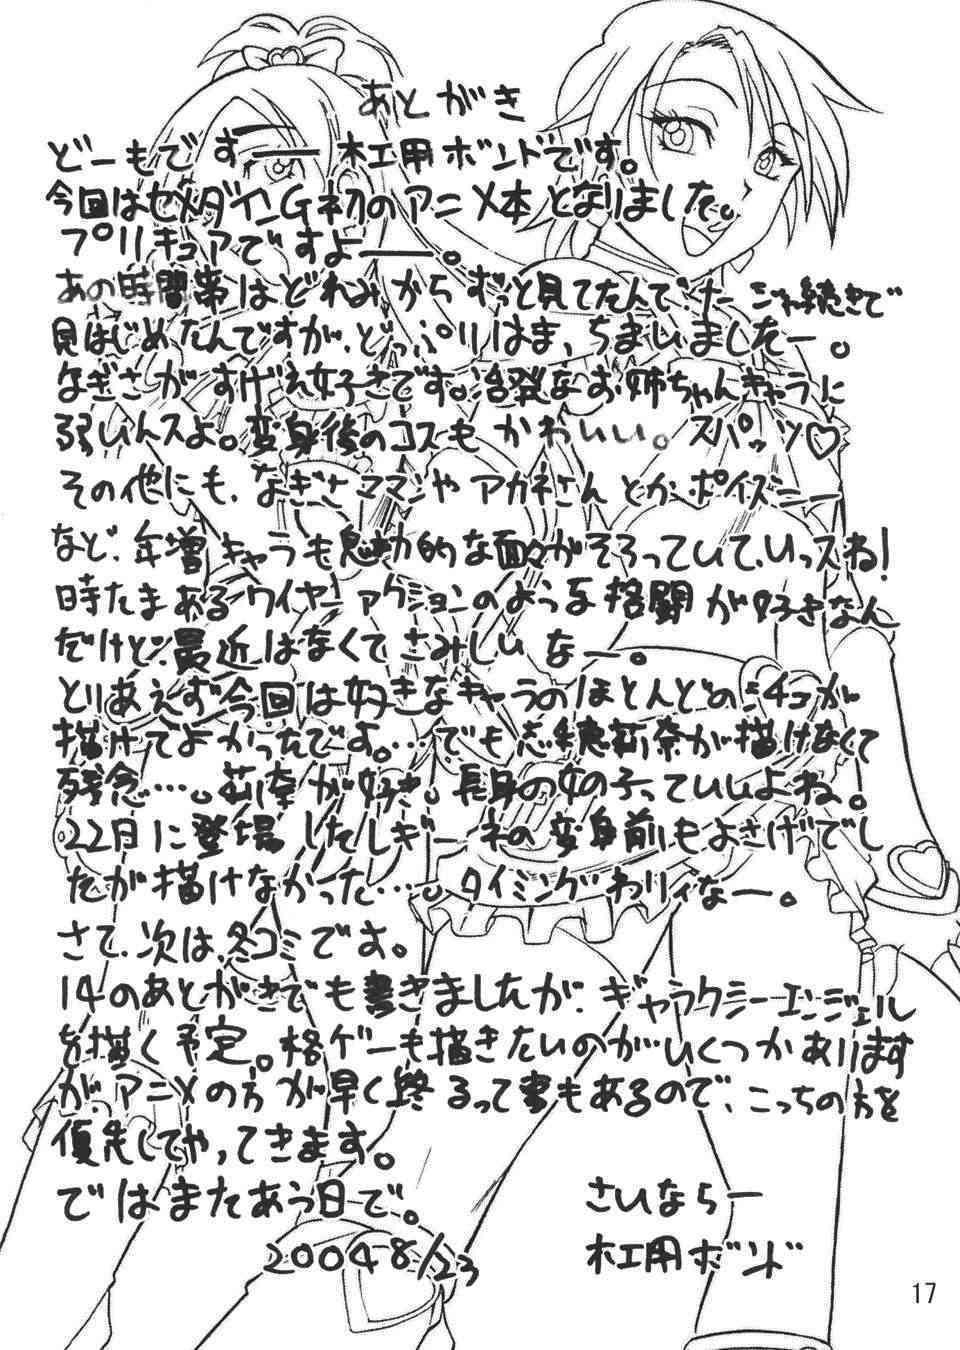 あとがき
どーもですー 木工用ボンドです。
今回はセメダインG初のアニメ本となりました。
プリキュアですよー。
あの時間帯はどれみからずっと見てたんでー 続きで
見はじめたんですが、どっぷりはま、ちまいましたー。
なぎさがすげえ好きです。活発なお姉ちゃんキャラに
弱いんスよ。変身後のコスもかわいい。スパッツ♡
その他にも、なぎさママンやアカネさんとかポイズニー
など、年増キャラも魅力的な面々がそろっていて、いっスね!
時たまあるワイヤーアクションのような格闘が好きなん
だけど、最近はなくてさみしいなー。
とりあえず今回は好きなキャラのほとんどのシチュが
描けてよかったです。…でも志穂莉奈が描けなくて
残念…。莉奈が好き。長身の女の子っていいよね。
22日に登場したレギーネの変身前もよさげでし
たが描けなかった…。タイミングわりィなー。
さて、次は、冬コミです。
14のあとがきでも書きましたが、ギャラクシーエンジェル
を描く予定。格ゲーも描きたいのが、いくつかあります
が、アニメの方が早く終るって事もあるので、こっちの方を
優先してやってきます。
ではまたあう日で。
さいならー
2004 8/23
木工用ボンド
17